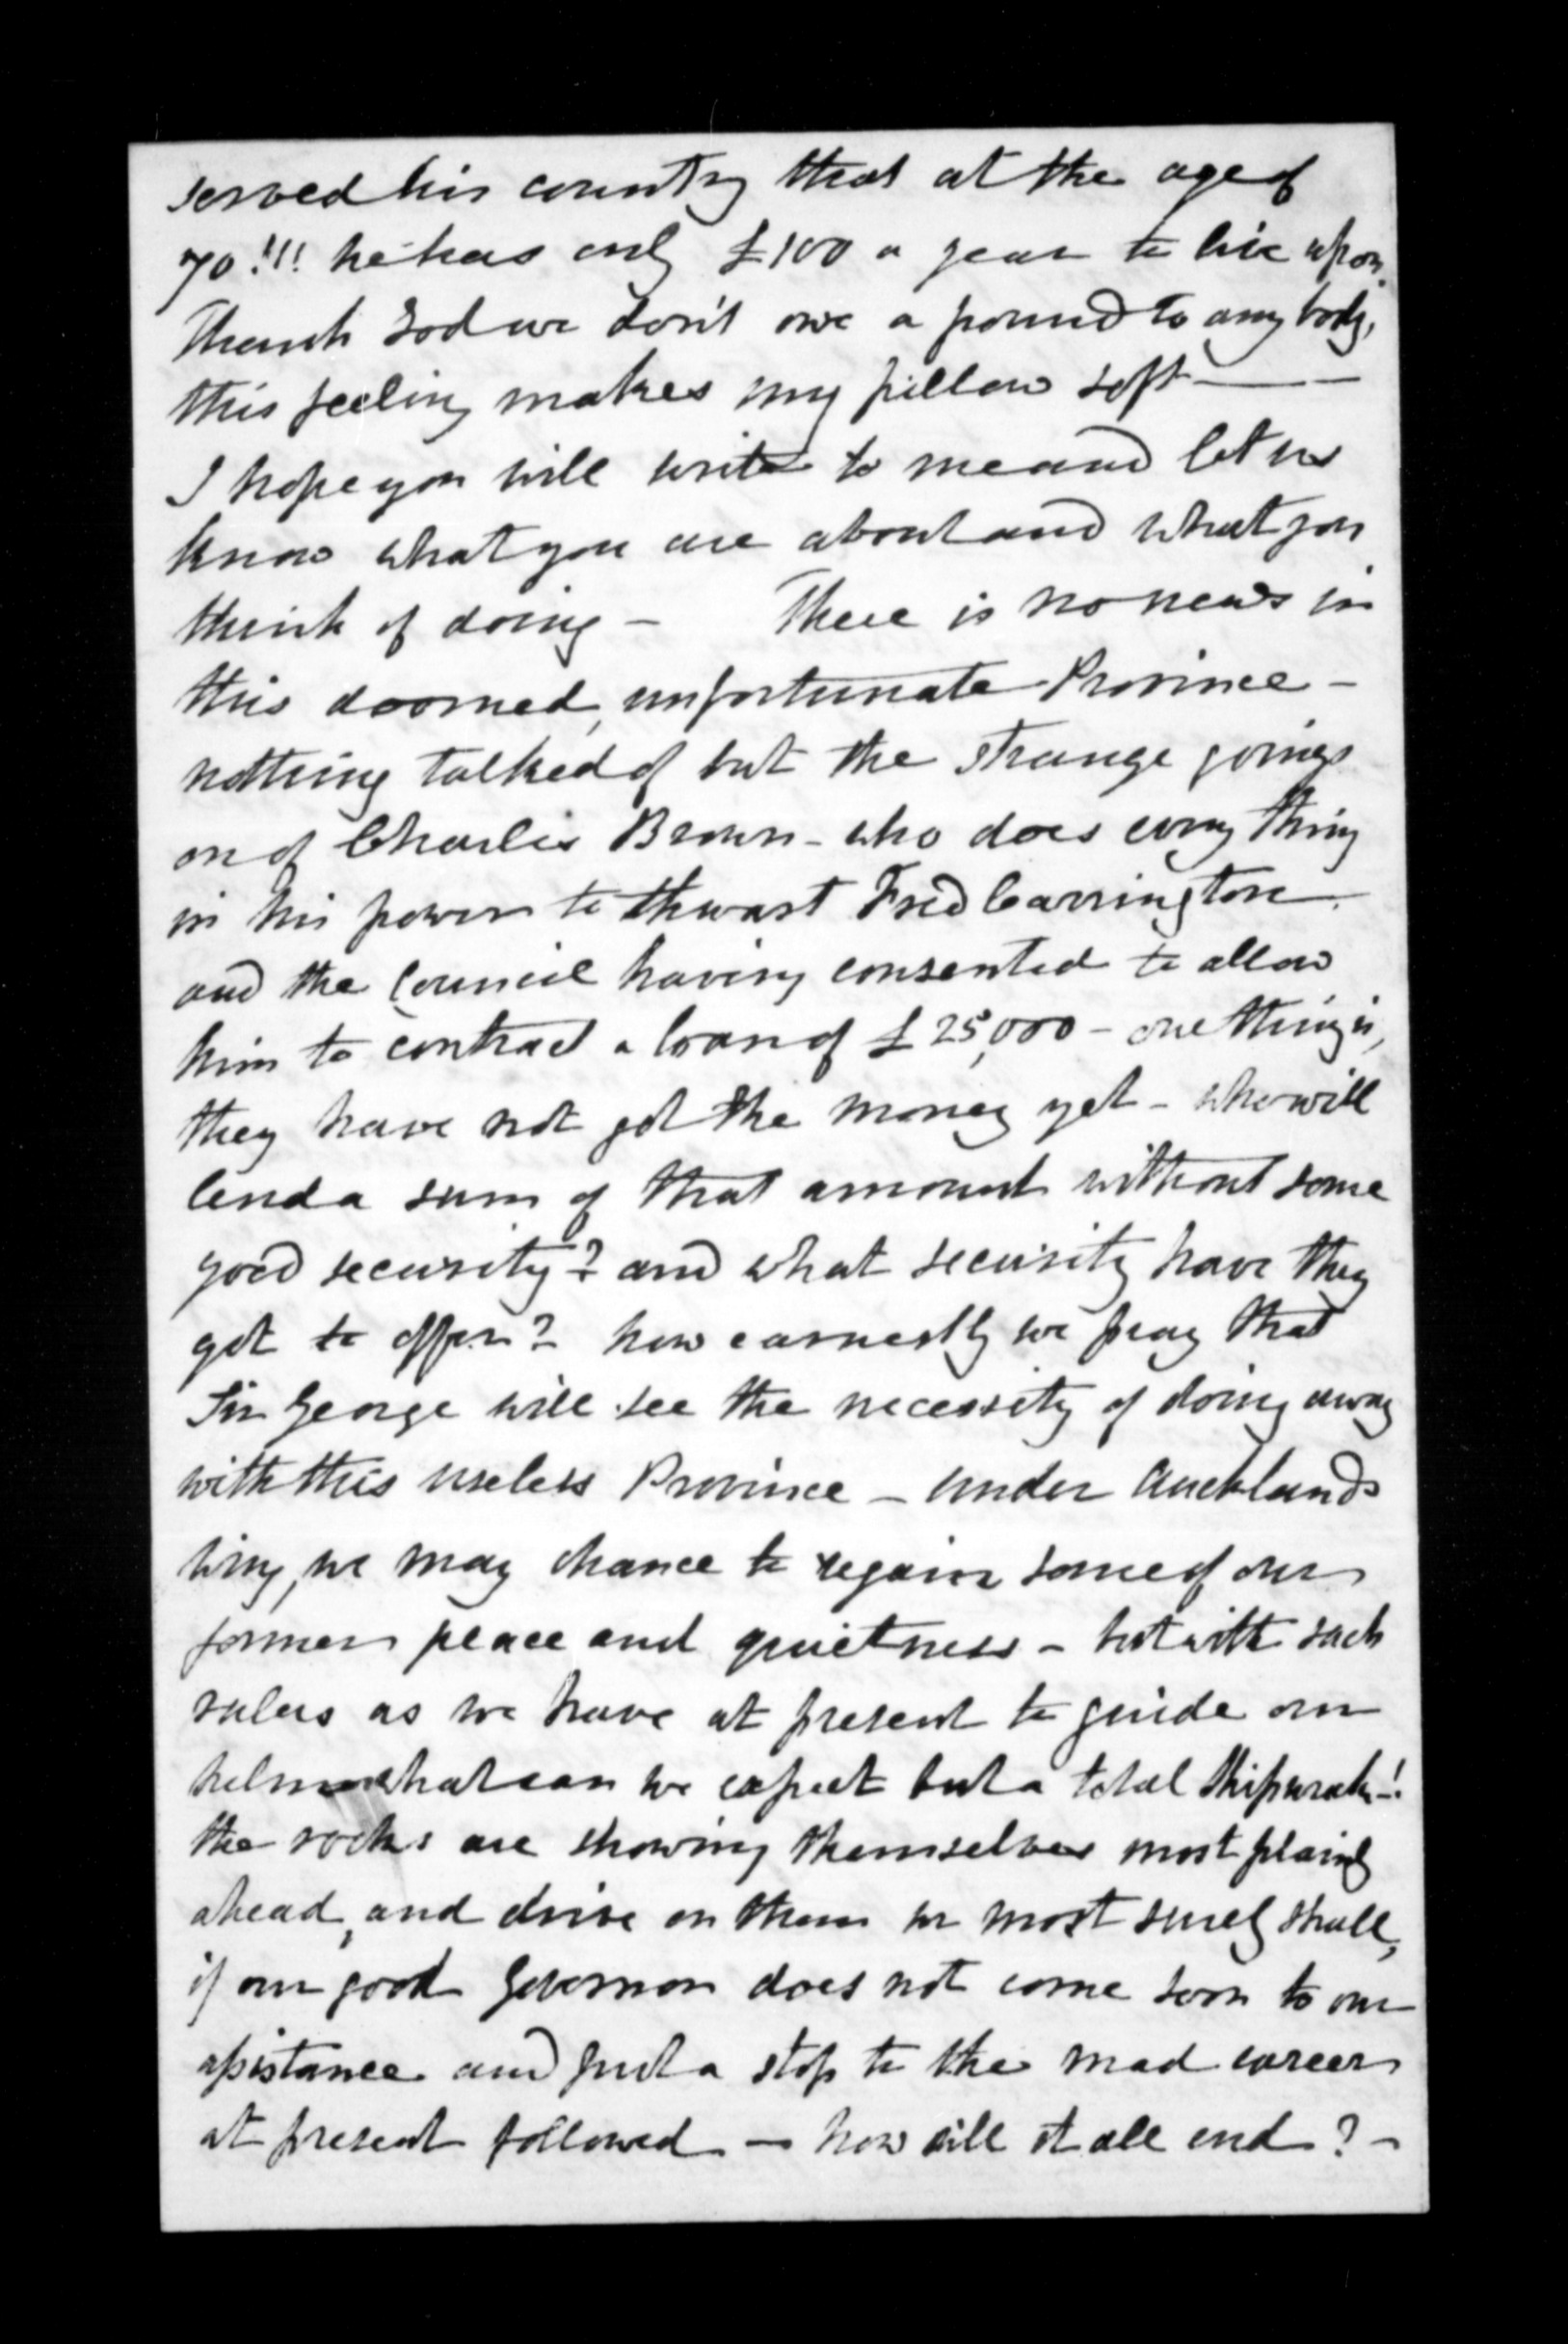 served his country that at the age of
70!!! he has only £100 a year to live upon.
Thank God we don't owe a pound to any body,
this feeling makes my pillow soft ——
I hope you will write to me and let us
know what you are about and what you
think of doing – There is no news in
this doomed, unfortunate Province –
nothing talked of but the strange goings
on of Charlie Brown – who does every thing
in his power to thwart Fred Carrington
and the Council having consented to allow
him to contract a loan of £25,000 – one thing is,
they have not got the money yet – who will
lend a sum of that amount without some
good security? and what security have they
got to offer? how earnestly we pray that
Sir George will see the necessity of doing away
with this useless Province – under Aucklands
wing, we may chance to regain some of our
former peace and quietness – but with such
rulers as we have at present to guide our
helm what can we expect but a total shipwreck –!
the rocks are showing themselves most plainly
ahead, and drive on them we most surely shall,
if our good Governor does not come soon to our
assistance and put a stop to the mad career
at present followed – how will it all end? –